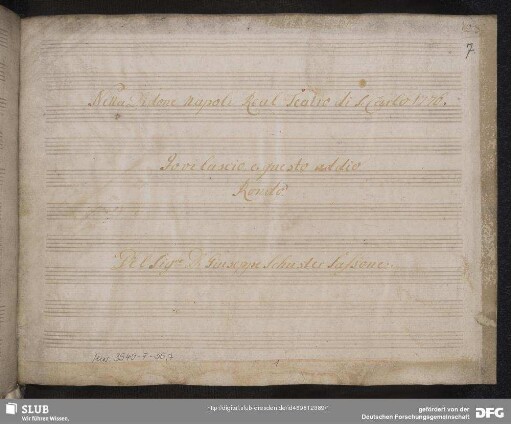 7
Nella Didone Napoli Real Teatro di S. Carlo 1776.
Io vi lascio e questo addio
Rondò
Del Sigr. D. Giuseppe Schuster Sassone.
Mus. 3549-F-
1
SLUB
Wir führen Wissen.
http://digital.slub-dresden.de/id
gefördert von der
Deutschen Forschungsgemeinschaft
DFG